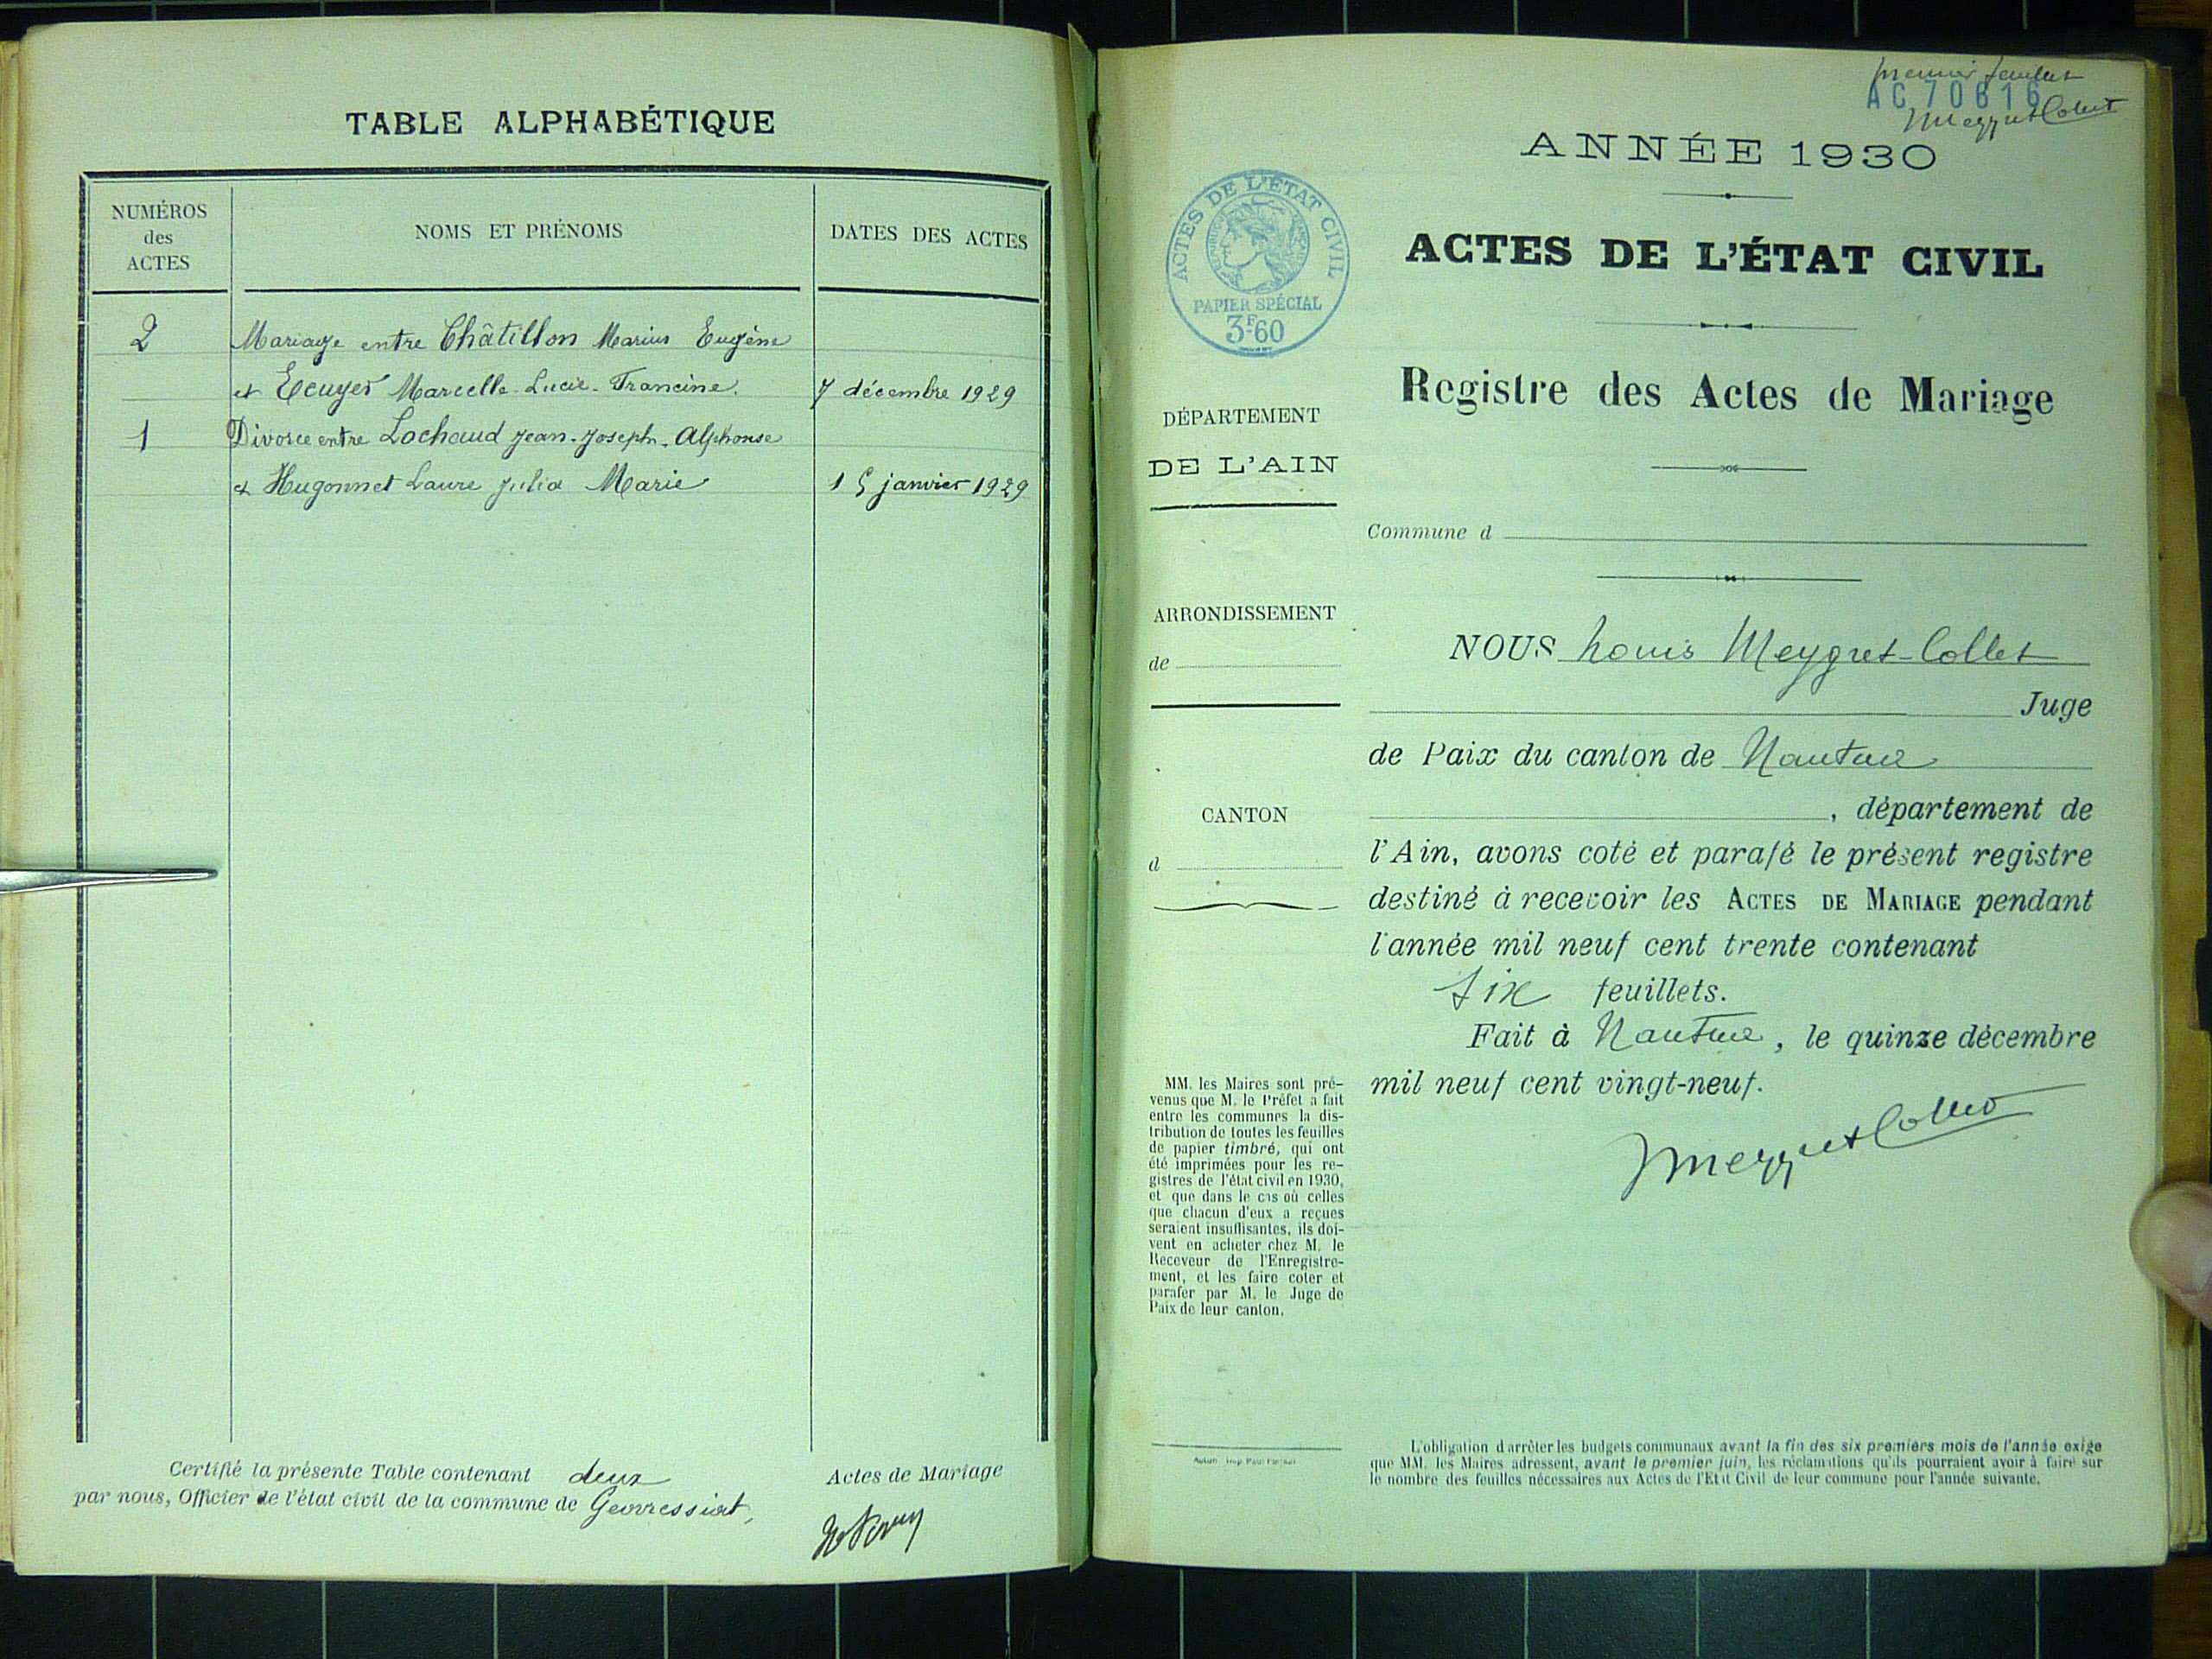 TABLE ALPHABÉTIQUE
NUMÉROS
des
ACTES
NOMS ET PRÉNOMS
DATES DES ACTES
2
Mariage entre Châtillon Marius Eugène
et Ecuyer Marcelle-Lucie-Francine.
7 décembre 1929
1
Divorce entre Lochaud Jean-Joseph-Alphonse
et Hugonnet Laure Julia Marie
15 janvier 1929
Certifié la présente Table contenant deux
Actes de Mariage
par nous, Officier de l'état civil de la commune de Geovressiat,
premier feuillet
AC 70616
Meygret Collet
ANNÉE 1930
ACTES DE L'ÉTAT CIVIL
RÉPUBLIQUE FRANÇAISE
PAPIER SPÉCIAL
3F60
ACTES DE L'ÉTAT CIVIL
Registre des Actes de Mariage
DÉPARTEMENT
DE L'AIN
Commune d
ARRONDISSEMENT
de
CANTON
d
NOUS Louis Meygret-Collet
Juge
de Paix du canton de Nantua
, département de
l'Ain, avons coté et parafé le présent registre
destiné à recevoir les ACTES DE MARIAGE pendant
l'année mil neuf cent trente contenant
six feuillets.
Fait à Nantua, le quinze décembre
mil neuf cent vingt-neuf.
Meygret Collet
MM. les Maires sont pré-
venus que M. le Préfet a fait
entre les communes la dis-
tribution de toutes les feuilles
de papier timbré, qui ont
été imprimées pour les re-
gistres de l'état civil en 1930,
et que dans le cas où celles
que chacun d'eux a reçues
seraient insuffisantes, ils doi-
vent en acheter chez M. le
Receveur de l'Enregistre-
ment, et les faire coter et
parafer par M. le Juge de
Paix de leur canton.
L'obligation d'arrêter les budgets communaux avant la fin des six premiers mois de l'année exige
que MM. les Maires adressent, avant le premier juin, les réclamations qu'ils pourraient avoir à faire sur
le nombre des feuilles nécessaires aux Actes de l'Etat Civil de leur commune pour l'année suivante.